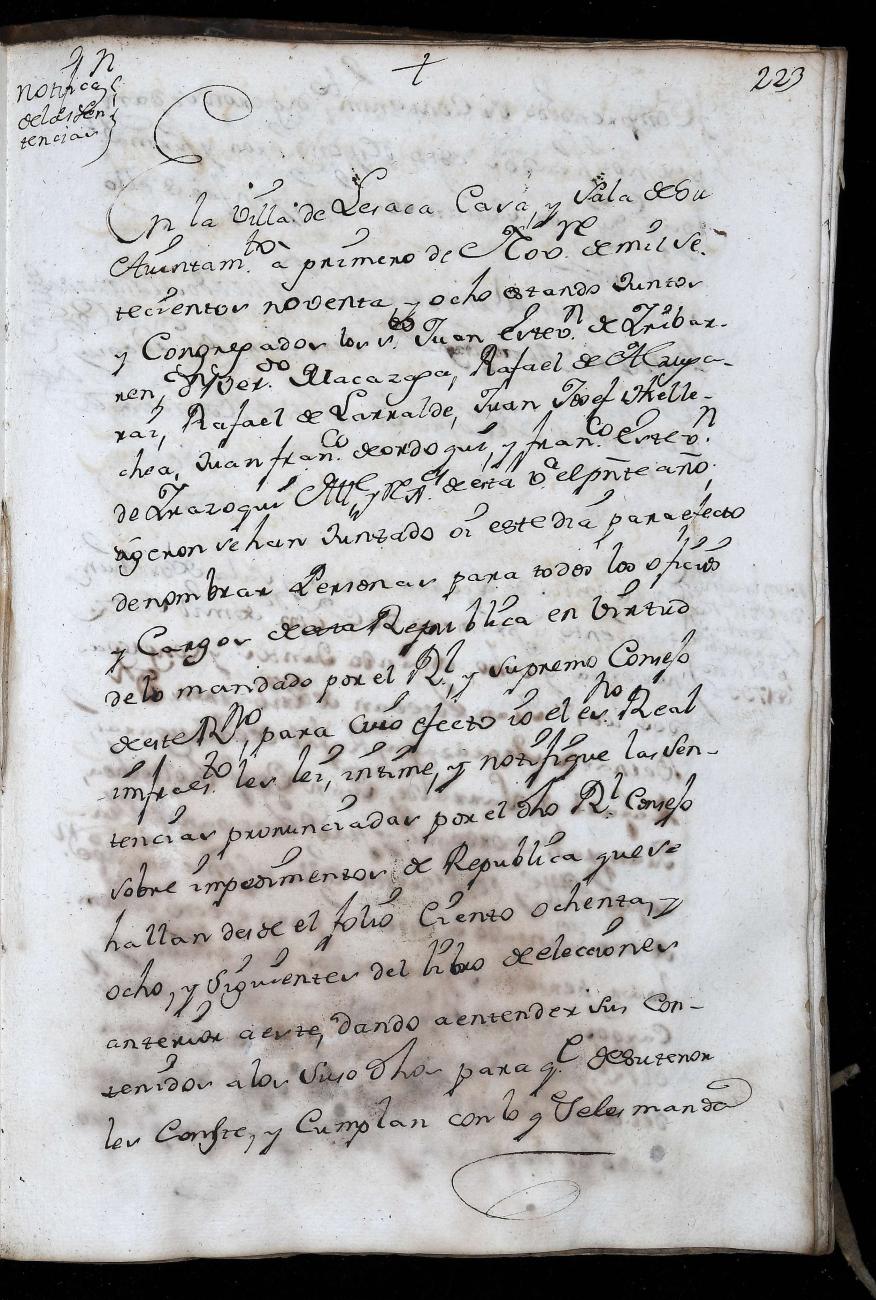 223
notifica.n
de las Sen
tencias
En la Villa de Lesaca Casa, y Sala de su
Aiuntam.to a primero de Nov.re de mil se-
tecientos noventa, y ocho estando Juntos
y Congregados los s.res Juan Estev.n de Iribar-
ren, Macazaga, Rafael de
Rafael de Larralde, Juan Josef Telle-
chea, Juan Fran.co de ordoqui, y Fran.co Estev.n
de Irazoqui Al.e y Reg.s de esta v.a el pñte año;
digeron se han Juntado oi este dia para efecto
de nombrar Personas para todos los oficios
y Cargos de esta Republica en Virtud
de lo mandado por el R.l, y Supremo Consejo
de este R.no, para cuio efecto io el es.no Real
imfraes.to les lei, intime, y notifique las Sen-
tencias pronunciadas por el dho R.l Consejo
sobre impedimentos de Republica que se
hallan desde el folio Ciento ochenta, y
ocho, y Siguientes del libro de elecciones
anterior a este, dando a entender sus Con-
tenidos a los Suso dhos para q.e de su tenor
les Conste, y Cumplan con lo q.e Se les manda